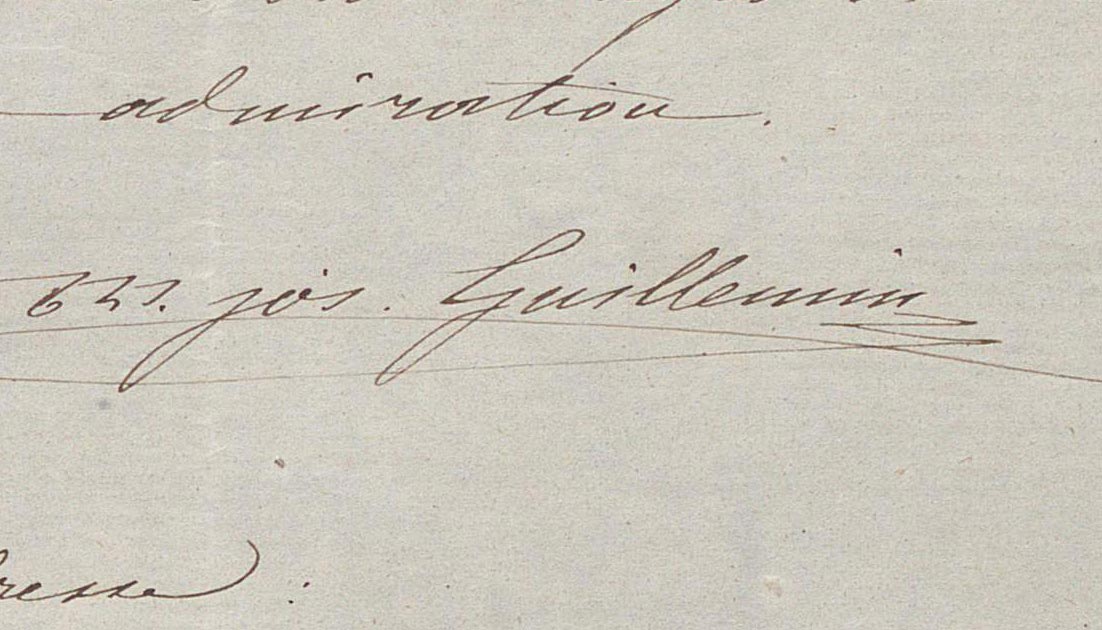 admiration.
jos. Guillemin
resse :